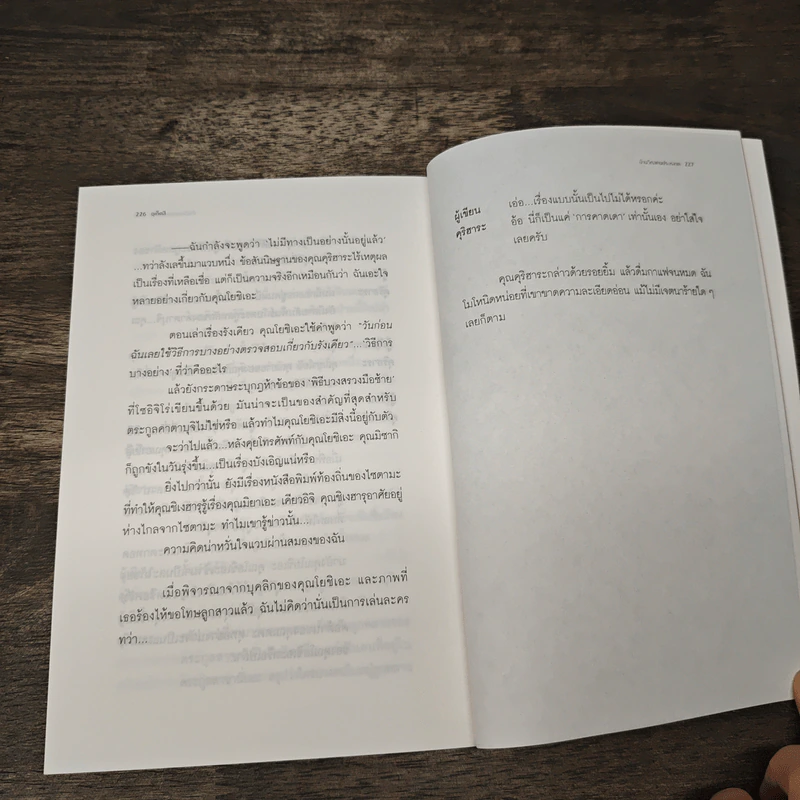 226
——ฉันกำลังจะพูดว่า 'ไม่มีทางเป็นอย่างนั้นอยู่แล้ว'
...ทว่าลังเลขึ้นมาแวบหนึ่ง ข้อสันนิษฐานของคุณคุริฮาระไร้เหตุผล
เป็นเรื่องที่เหลือเชื่อ แต่ก็เป็นความจริงอีกเหมือนกันว่า ฉันเอะใจ
หลายอย่างเกี่ยวกับคุณโยชิเอะ
ตอนเล่าเรื่องรังเคียว คุณโยชิเอะใช้คำพูดว่า "วันก่อน
ฉันเลยใช้วิธีการบางอย่างตรวจสอบเกี่ยวกับรังเคียว"...'วิธีการ
บางอย่าง' ที่ว่าคืออะไร
แล้วยังกระดาษระบุกฎห้าข้อของ 'พิธีบวงสรวงมือซ้าย'
ที่โซอิจิโร่เขียนขึ้นด้วย มันน่าจะเป็นของสำคัญที่สุดสำหรับ
ตระกูลคาตาบุจิไม่ใช่หรือ แล้วทำไมคุณโยชิเอะมีสิ่งนี้อยู่กับตัว
จะว่าไปแล้ว...หลังคุยโทรศัพท์กับคุณโยชิเอะ คุณมิซากิ
ก็ถูกขังในวันรุ่งขึ้น...เป็นเรื่องบังเอิญแน่หรือ
ยิ่งไปกว่านั้น ยังมีเรื่องหนังสือพิมพ์ท้องถิ่นของไซตามะ
ที่ทำให้คุณชิเงฮารุรู้เรื่องคุณมิยาเอะ เคียวอิจิ คุณชิเงฮารุอาศัยอยู่
ห่างไกลจากไซตามะ ทำไมเขารู้ข่าวนั้น...
ความคิดน่าหวั่นใจแวบผ่านสมองของฉัน
เมื่อพิจารณาจากบุคลิกของคุณโยชิเอะ และภาพที่
เธอร้องไห้ขอโทษลูกสาวแล้ว ฉันไม่คิดว่านั่นเป็นการเล่นละคร
ทว่า...
227
ผู้เขียน เอ่อ...เรื่องแบบนั้นเป็นไปไม่ได้หรอกค่ะ
คุริฮาระ อ้อ นี่ก็เป็นแค่ 'การคาดเดา' เท่านั้นเอง อย่าใส่ใจ
เลยครับ
คุณคุริฮาระกล่าวด้วยรอยยิ้ม แล้วดื่มกาแฟจนหมด ฉัน
โมโหนิดหน่อยที่เขาขาดความละเอียดอ่อน แม้ไม่มีเจตนาร้ายใด ๆ
เลยก็ตาม